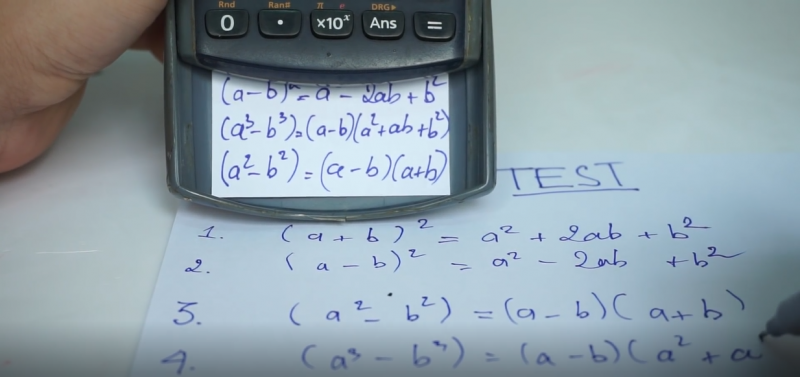 Rnd Ran# π e DRG▸
0 • ×10ˣ Ans =
(a-b)²=a²-2ab+b²
(a³-b³)=(a-b)(a²+ab+b²)
(a²-b²)=(a-b)(a+b)
TEST
1. (a+b)²=a²+2ab+b²
2. (a-b)²=a²-2ab+b²
3. (a²-b²)=(a-b)(a+b)
4. (a³-b³)=(a-b)(a²+a